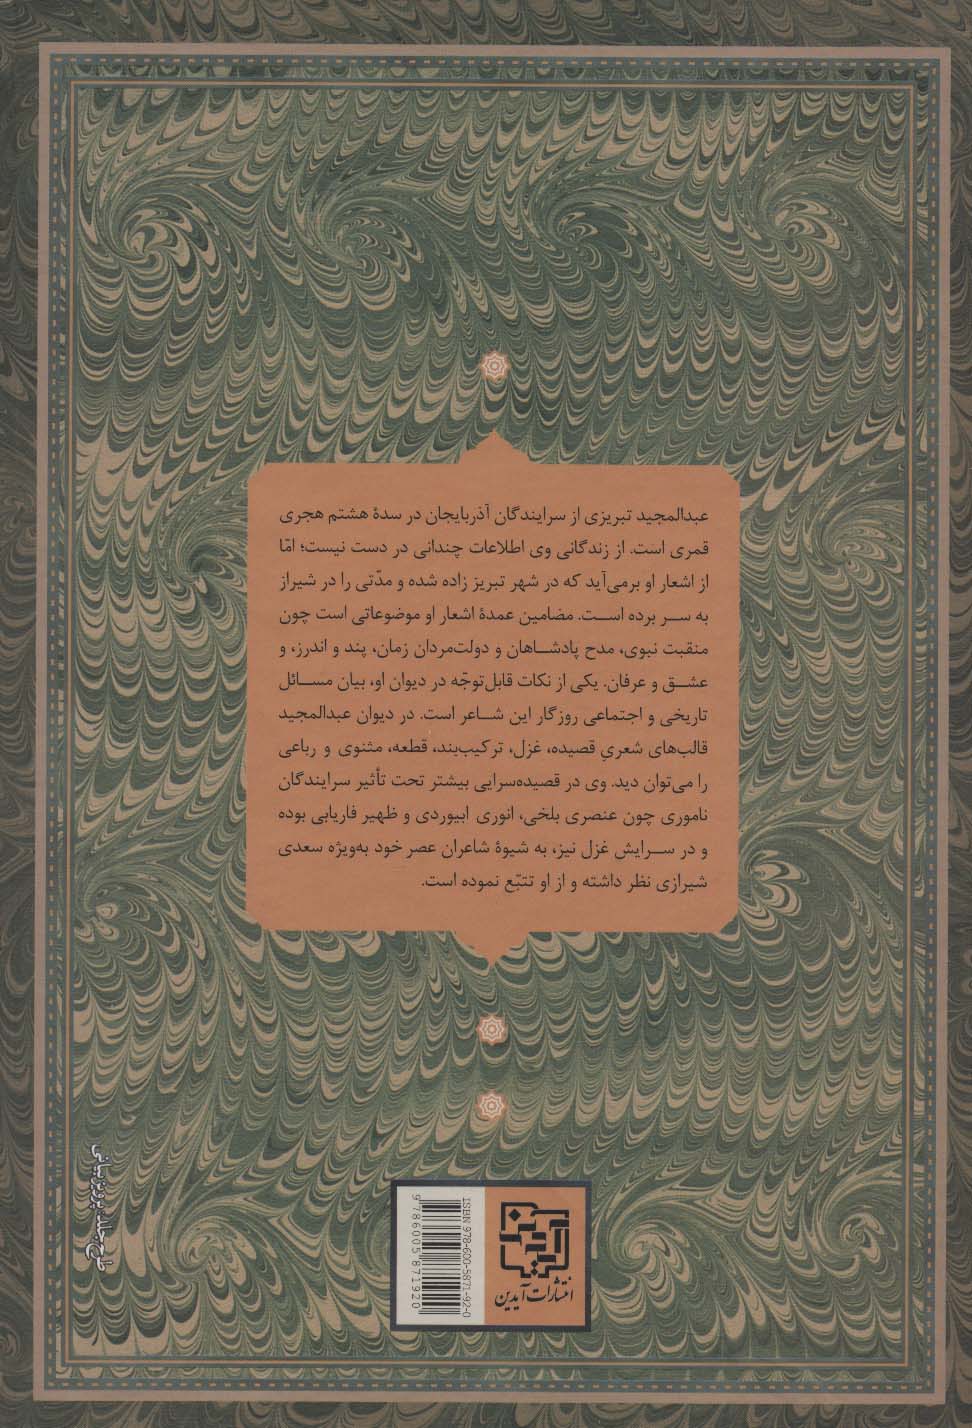 عبدالمجید تبریزی از سرایندگان آذربایجان در سدهٔ هشتم هجری
قمری است. از زندگانی وی اطلاعات چندانی در دست نیست؛ امّا
از اشعار او برمی‌آید که در شهر تبریز زاده شده و مدّتی را در شیراز
به سر برده است. مضامین عمدهٔ اشعار او موضوعاتی است چون
منقبت نبوی، مدح پادشاهان و دولت‌مردان زمان، پند و اندرز، و
عشق و عرفان. یکی از نکات قابل‌توجّه در دیوان او، بیان مسائل
تاریخی و اجتماعی روزگار این شاعر است. در دیوان عبدالمجید
قالب‌های شعریِ قصیده، غزل، ترکیب‌بند، قطعه، مثنوی و رباعی
را می‌توان دید. وی در قصیده‌سرایی بیشتر تحت تأثیر سرایندگان
ناموری چون عنصری بلخی، انوری ابیوردی و ظهیر فاریابی بوده
و در سرایش غزل نیز، به شیوهٔ شاعران عصر خود به‌ویژه سعدی
شیرازی نظر داشته و از او تتبّع نموده است.
طرح جلد: پرویز بیانی
آیدین
انتشارات آیدین
ISBN 978-600-5871-92-0
9 786005 871920